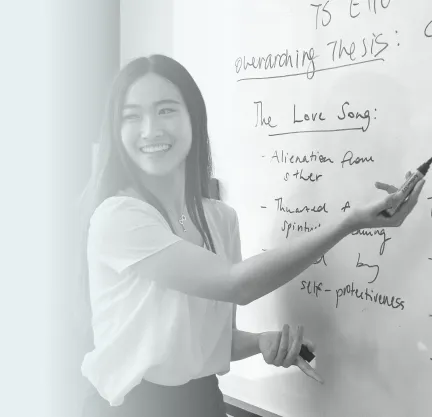 TS Elio
overarching Thesis:
The Love Song:
- Alienation from
other
- Thwarted
by
self-protectiveness